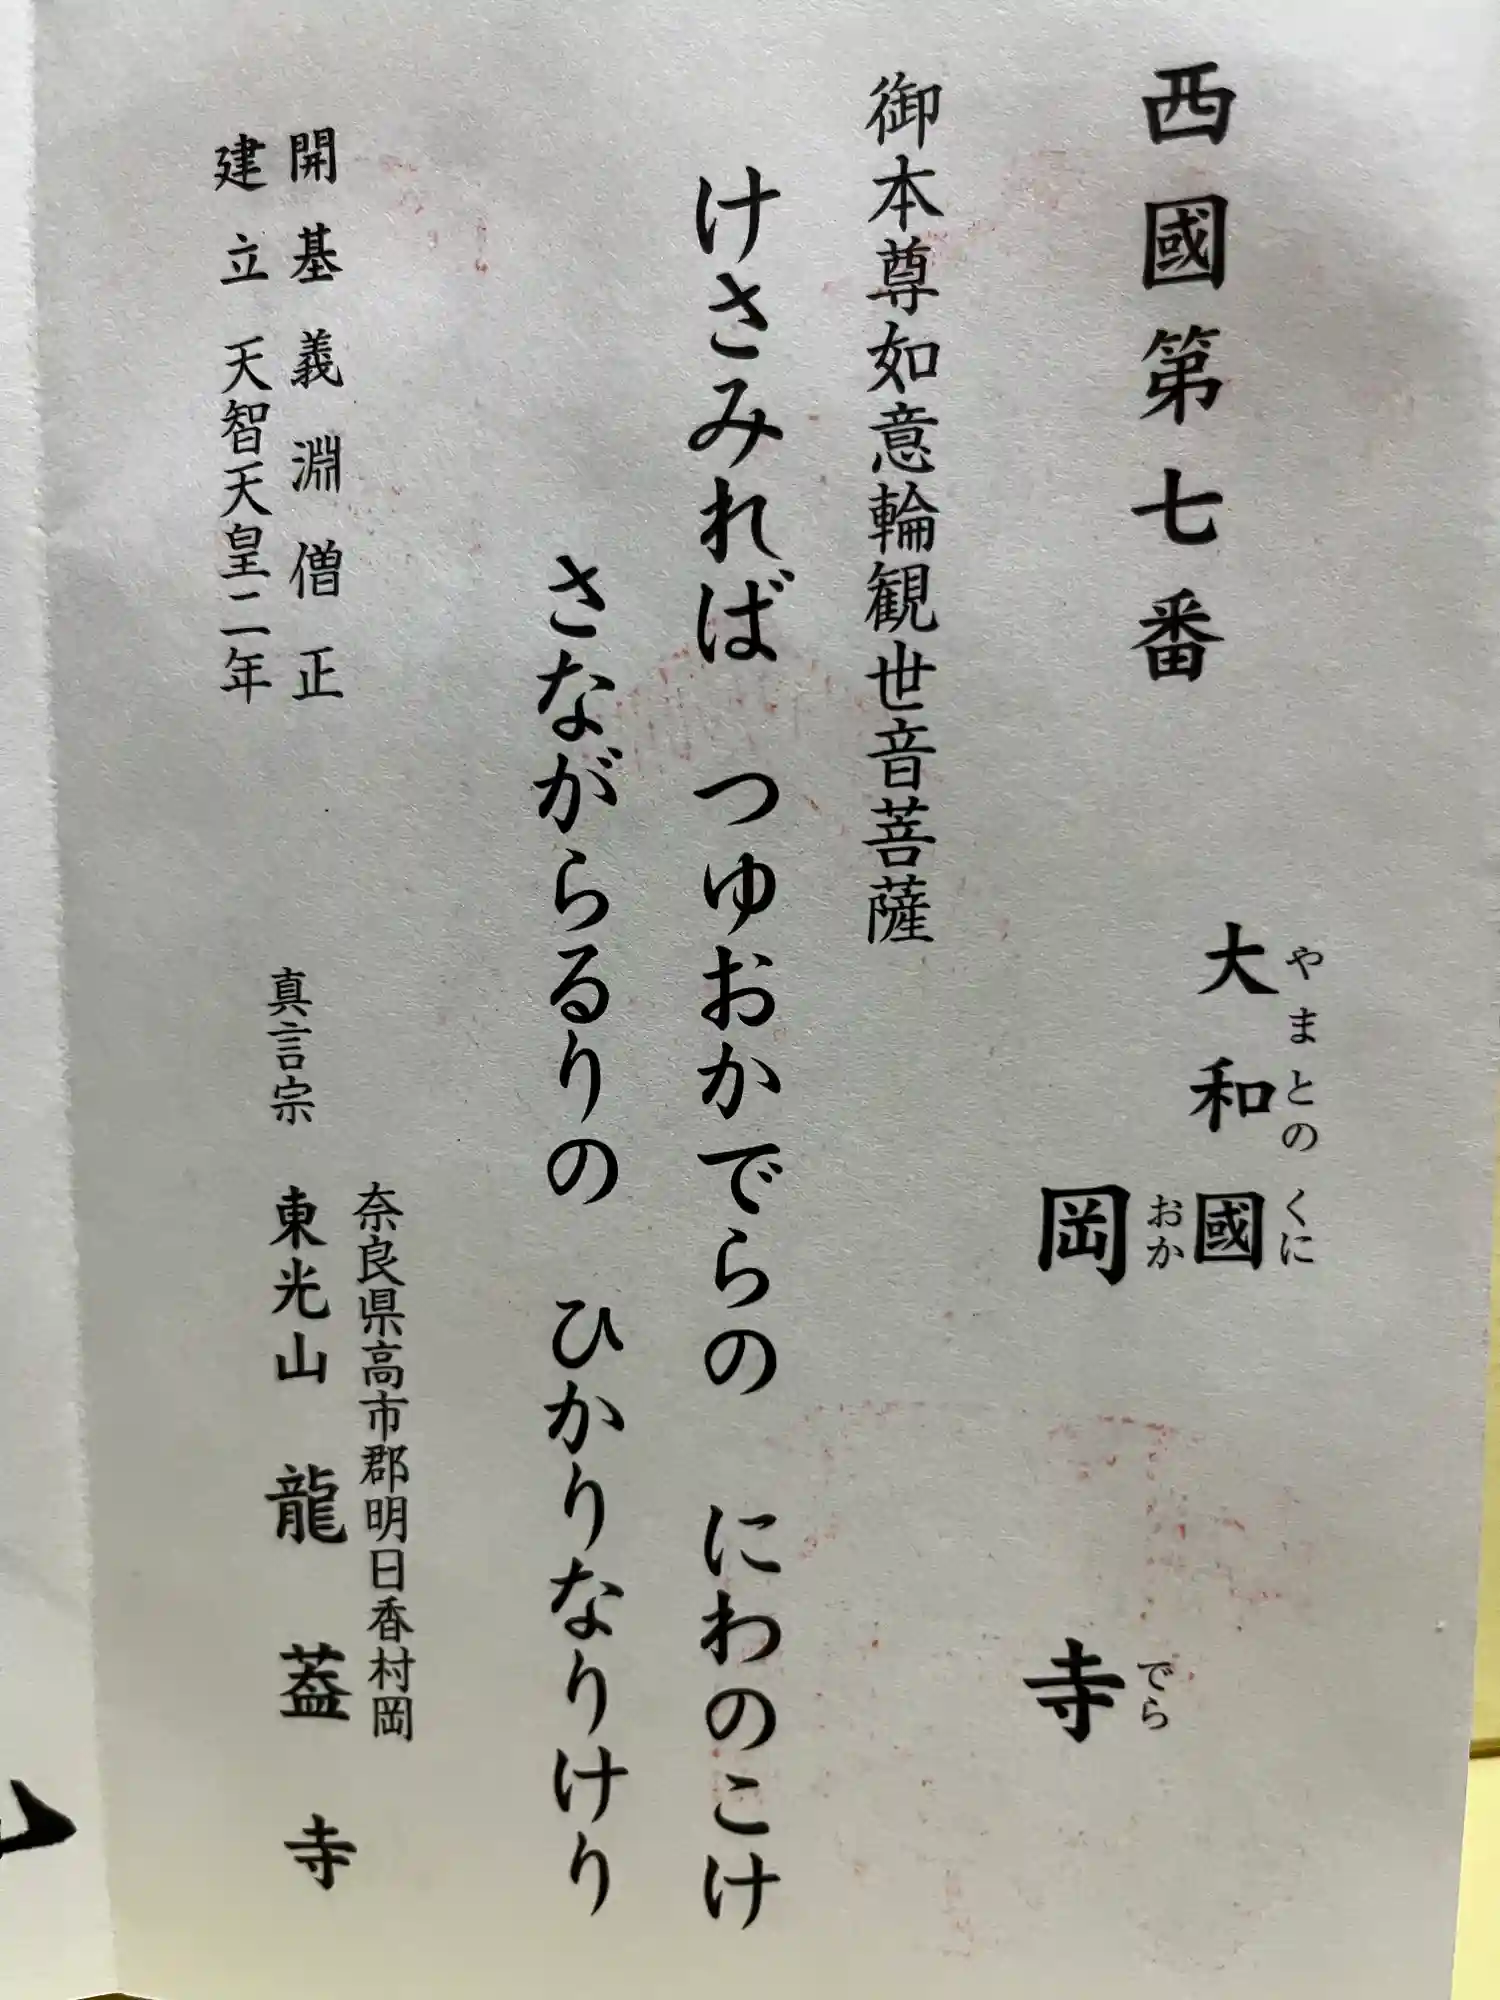 西國第七番
やまとのくに
大和國
おか でら
岡寺
御本尊如意輪観世音菩薩
けさみれば つゆおかでらの にわのこけ
さながらるりの ひかりなりけり
開基 義淵僧正
建立 天智天皇二年
奈良県高市郡明日香村岡
真言宗 東光山 龍蓋寺